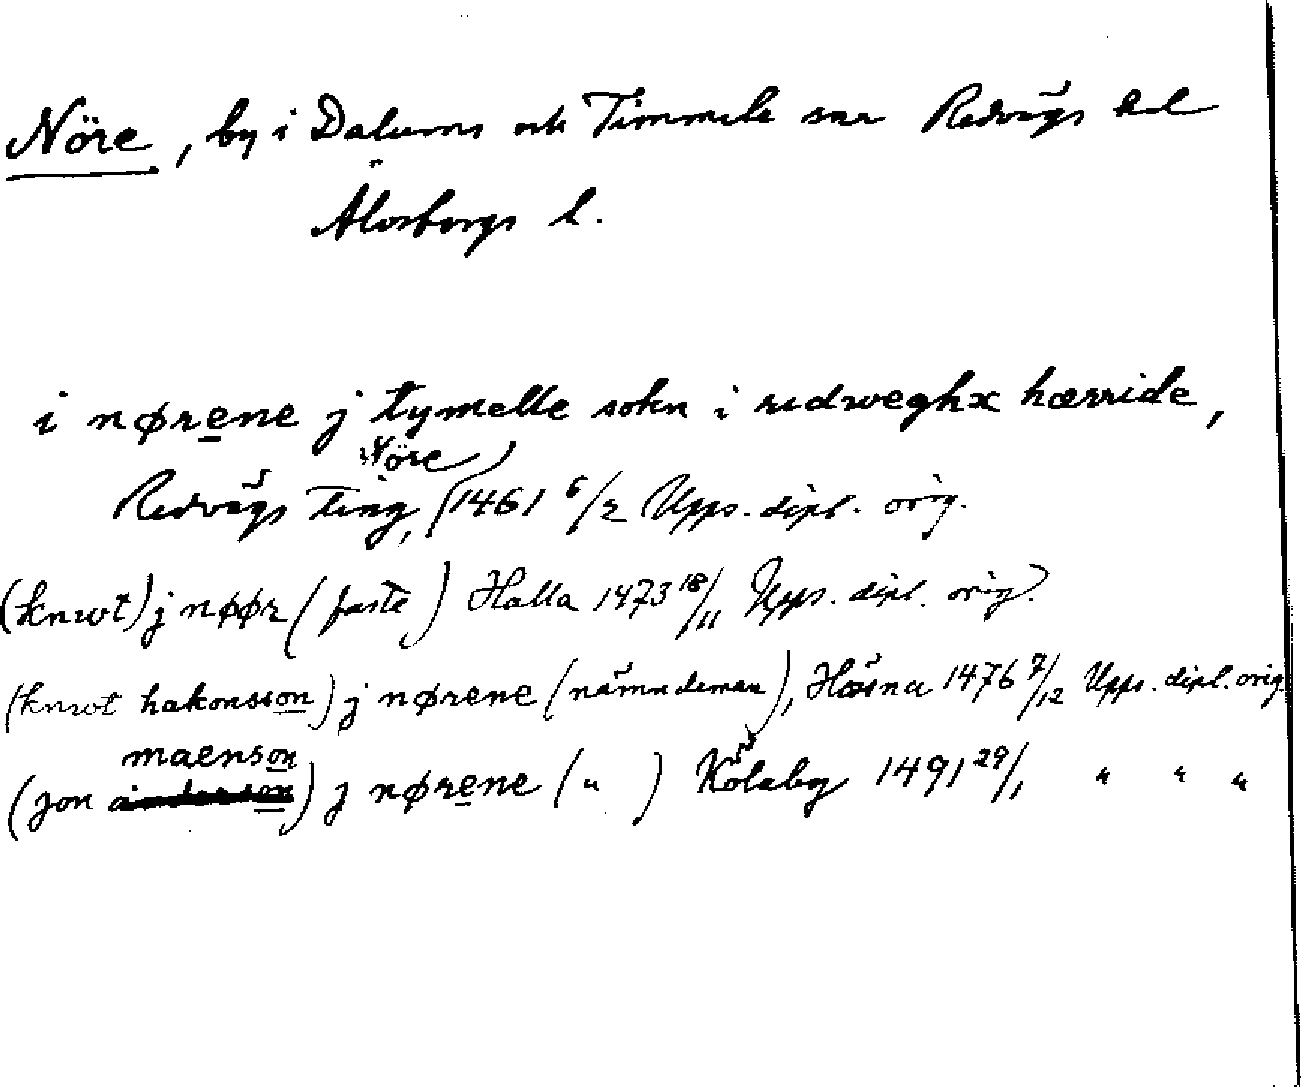 Nöre, by i Dalums och Timmele snr Redvägs hd
Älvsborgs l.
i nørene j tymelle sokn i redweghx hærride,
Nöre
Redvägs Ting, (1461 6/2 Upps. dipl. orig.
(knwt) j nøør (faste) Halla 1473 18/11 Upps. dipl. orig.
(knwt hakonsson) j nørene (nämndeman), Hösna 1476 7/12 Upps. dipl. orig
maenson
(jon anderson) j nørene ( " ) Kölaby 1491 29/1 " " "